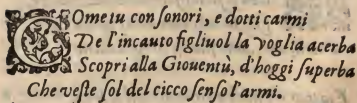 COme tu con sonori, e dotti carmi
De l'incauto figliuol la voglia acerba
Scopri alla Giouentù, d'hoggi superba
Che veste sol del cicco senso l'armi.